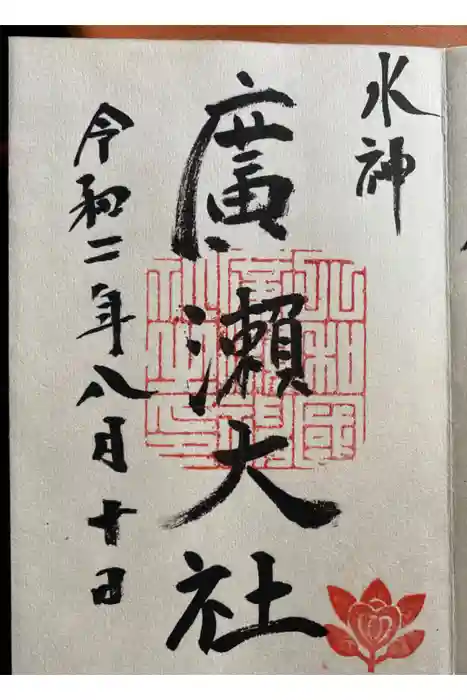 水神
廣瀬大社
令和二年八月十日